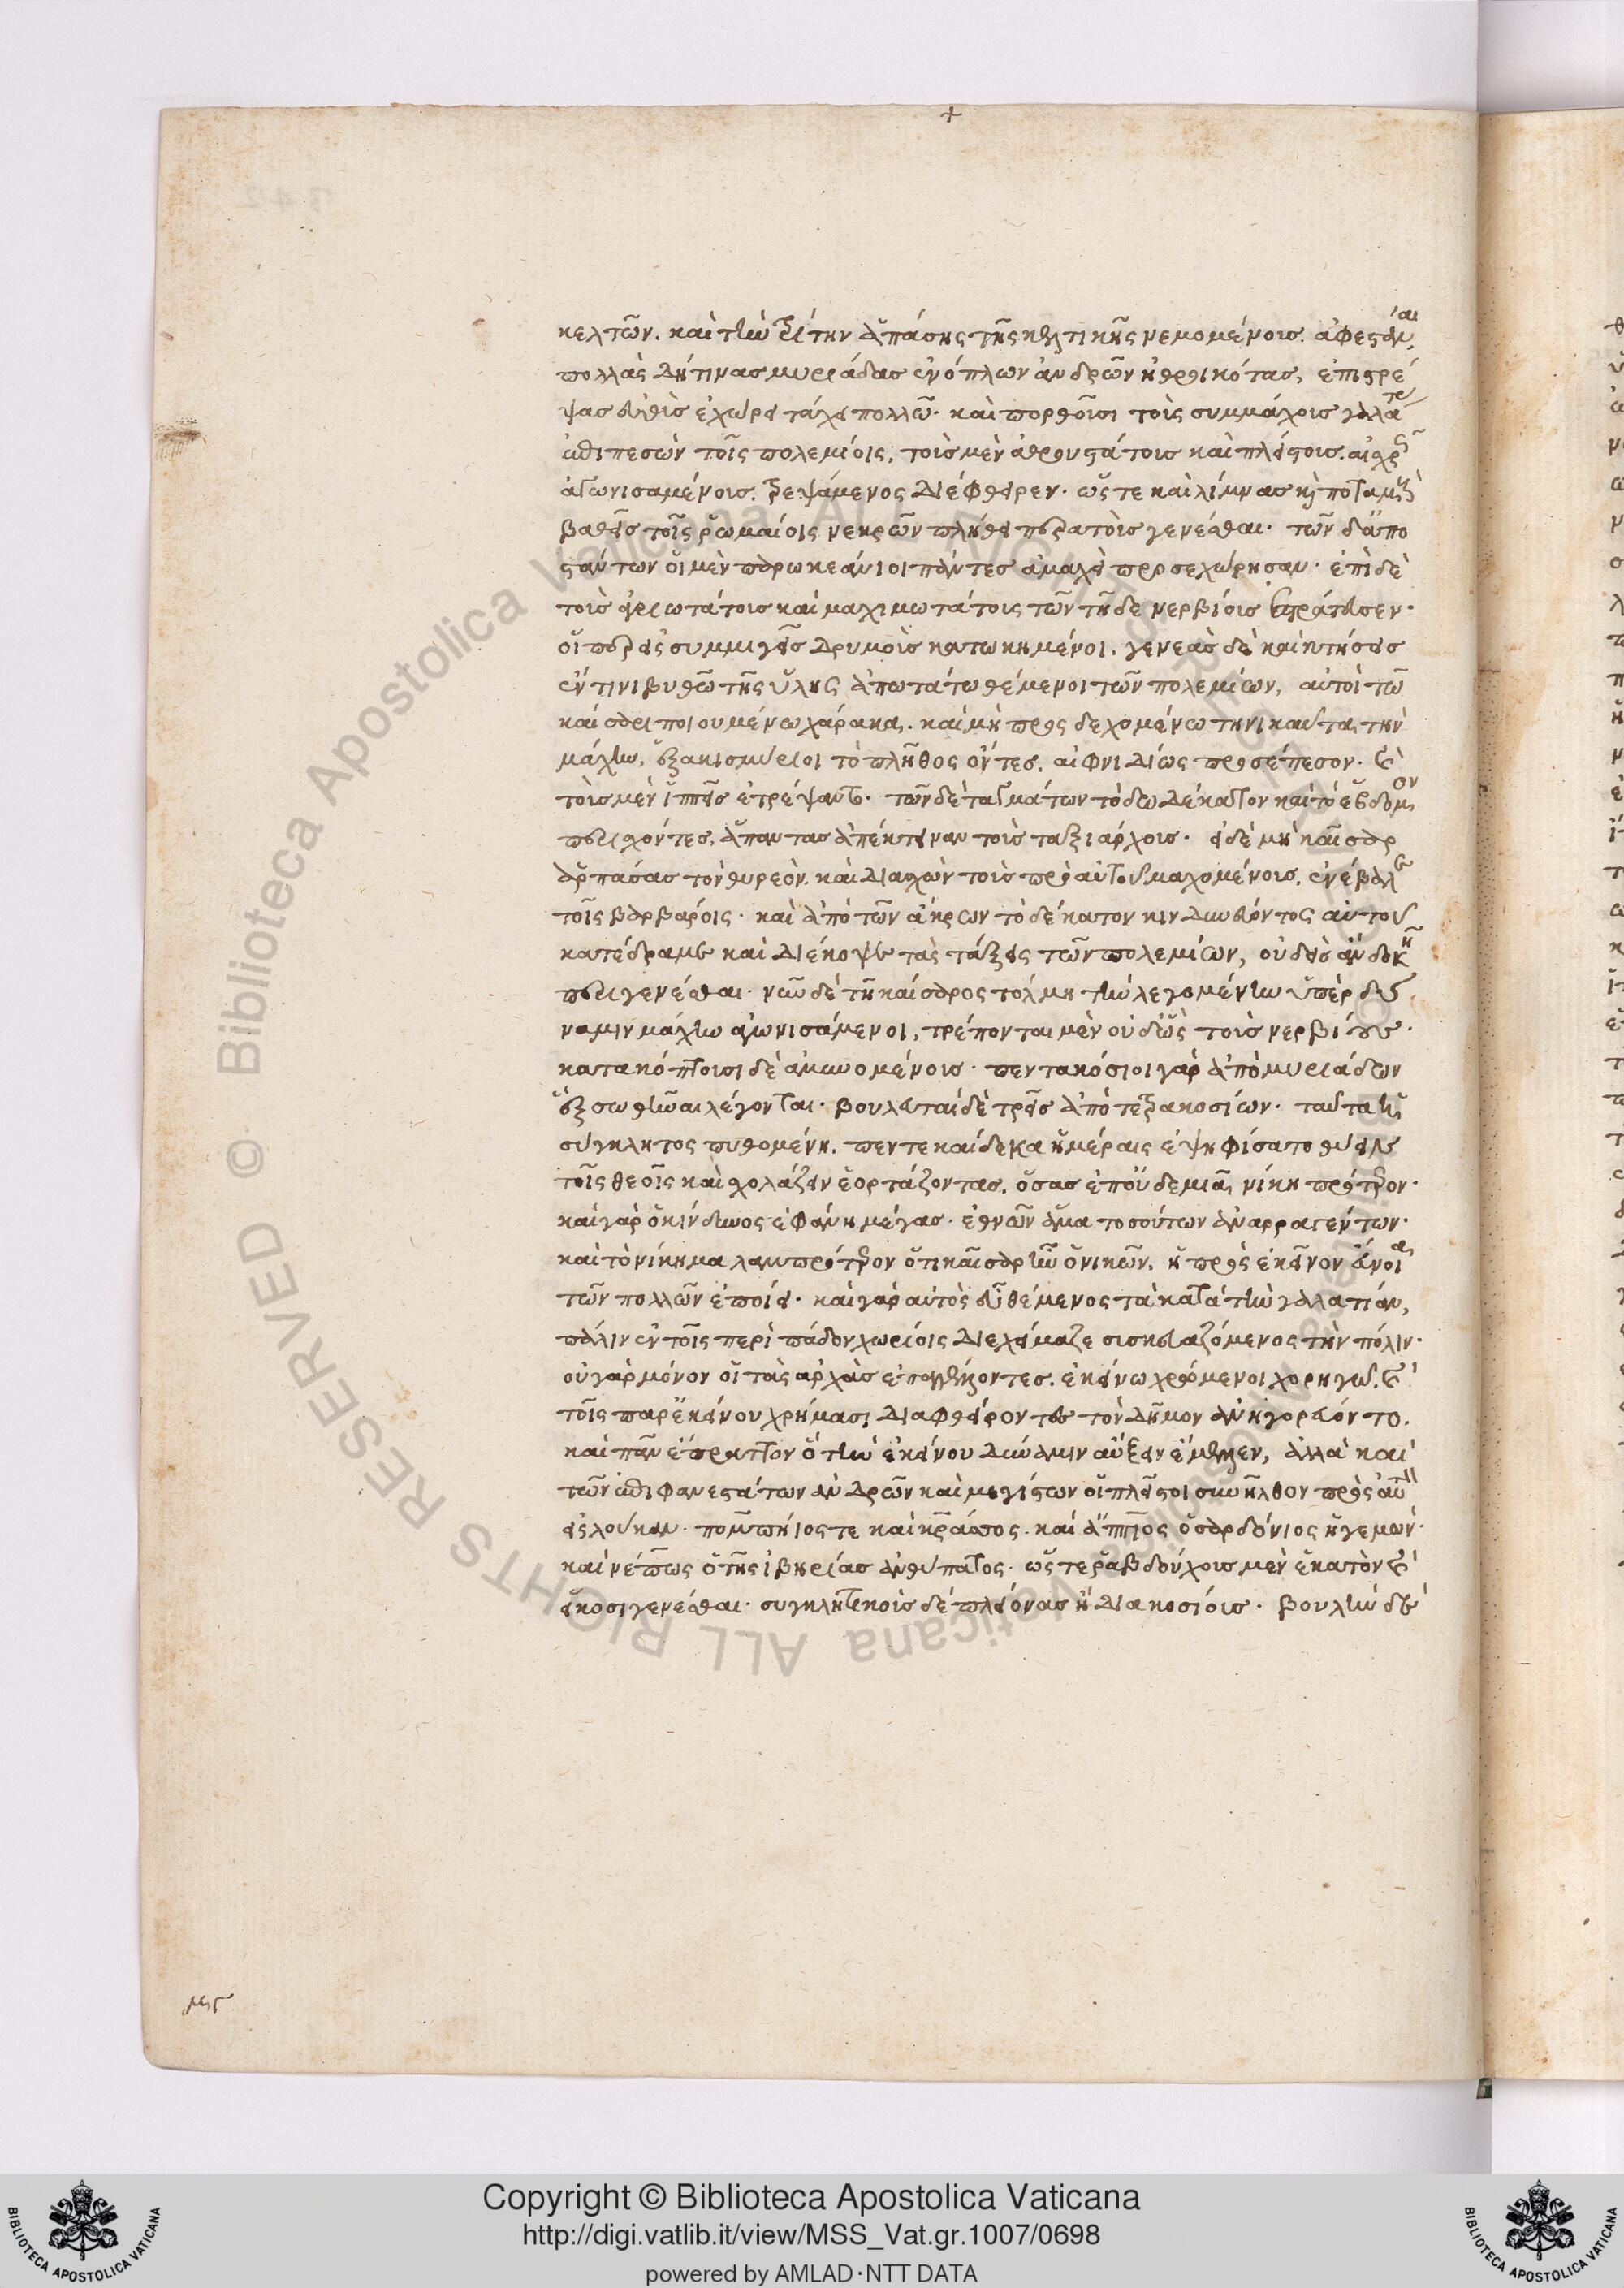 +
κελτῶν. καὶ τὴν τρίτην ἁπάσης τῆς κελτικῆς νεμομένοις. ἀφεστάναι
πολλὰς δή τινας μυριάδας ἐνόπλων ἀνδρῶν ἠθροικότας, ἐπιστρέ
ψας αὖθις ἐχώρει τάχει πολλῶ. καὶ πορθοῦσι τοὺς συμμάχους γαλάτας
ἐπιπεσὼν τοῖς πολεμίοις, τοὺς μὲν ἀθρουστάτους καὶ πλείστους. αἰσχρῶς
ἀγωνισαμένους. τρεψάμενος διέφθειρεν. ὥστε καὶ λίμνας καὶ ποταμοὺς
βαθεῖς τοῖς ῥωμαίοις νεκρῶν πλήθει περατοὺς γενέσθαι. τῶν δ' ἀπο
στάντων οἱ μὲν παρωκεάνιοι πάντες ἀμαχεὶ προσεχώρησαν. ἐπὶ δὲ
τοὺς ἀγριωτάτους καὶ μαχιμωτάτους τῶν τῆδε νερβίους ἐστράτευσεν.
οἵπερ εἰς συμμιγεῖς δρυμοὺς κατωκημένοι. γενεὰς δὲ καὶ κτήσεις
ἔν τινι βυθῶ τῆς ὕλης ἀπωτάτω θέμενοι τῶν πολεμίων, αὐτοὶ τῶ
καίσαρι ποιουμένω χάρακα. καὶ μὴ προσδεχομένω τηνικαῦτα τὴν
μάχην, ἑξακισμύριοι τὸ πλῆθος ὄντες. αἰφνιδίως προσέπεσον. καὶ
τοὺς μὲν ἱππεῖς ἐτρέψαντο. τῶν δὲ ταγμάτων τὸ δωδέκατον καὶ τὸ ἕβδομον
περισχόντες. ἅπαντας ἀπέκτειναν τοὺς ταξιάρχους. εἰ δὲ μὴ καῖσαρ
ἁρπάσας τὸν θυρεὸν. καὶ διασχὼν τοὺς πρὸ αὐτοῦ μαχομένους. ἐνέβαλε
τοῖς βαρβάροις. καὶ ἀπὸ τῶν ἄκρων τὸ δέκατον κινδυνεύοντος αὐτοῦ
κατέδραμε καὶ διέκοψε τὰς τάξεις τῶν πολεμίων, οὐδεὶς ἂν δοκεῖ
περιγενέσθαι. νῦν δὲ τῆ καίσαρος τόλμη τὴν λεγομένην ὑπὲρ δύ
ναμιν μάχην ἀγωνισάμενοι, τρέπονται μὲν οὐδ' ὣς τοὺς νερβίους.
κατακόπτουσι δὲ ἀμυνομένους. πεντακόσιοι γὰρ ἀπὸ μυριάδων
ἓξ σωθῆναι λέγονται. βουλευταὶ δὲ τρεῖς ἀπὸ τετρακοσίων. ταῦτα ἡ
σύγκλητος πυθομένη. πεντεκαίδεκα ἡμέρας ἐψηφίσατο θύειν
τοῖς θεοῖς καὶ σχολάζειν ἑορτάζοντας. ὅσας ἐπ' οὐδεμιᾶ νίκη πρότερον.
καὶ γὰρ ὁ κίνδυνος ἐφάνη μέγας. ἐθνῶν ἅμα τοσούτων ἀναρραγέντων.
καὶ τὸ νίκημα λαμπρότερον ὅτι καῖσαρ ἦν ὁ νικῶν. ἡ πρὸς ἐκεῖνον εὔνοια
τῶν πολλῶν ἐποίει. καὶ γὰρ αὐτὸς εὖ θέμενος τὰ κατὰ τὴν γαλατίαν,
πάλιν ἐν τοῖς περὶ πάδον χωρίοις διεχείμαζε συσκευαζόμενος τὴν πόλιν.
οὐ γὰρ μόνον οἱ τὰς ἀρχὰς παραγγέλλοντες. ἐκείνω χρώμενοι χορηγῶ. καὶ
τοῖς παρ' ἐκείνου χρήμασι διαφθείροντες τὸν δῆμον ἀνηγορεύοντο.
καὶ πᾶν ἔπραττον ὃ τὴν ἐκείνου δύναμιν αὔξειν ἔμελλεν, ἀλλὰ καὶ
τῶν ἐπιφανεστάτων ἀνδρῶν καὶ μεγίστων οἱ πλεῖστοι συνῆλθον πρὸς αὐτὸν
εἰς λοῦκαν. πομπήιός τε καὶ κράσσος. καὶ ἄππιος ὁ σαρδόνιος ἡγεμών.
καὶ νέπως ὁ τῆς ἰβηρίας ἀνθύπατος. ὥστε ῥαβδούχους μὲν ἑκατὸν καὶ
εἴκοσι γενέσθαι. συγκλητικοὺς δὲ πλείονας ἢ διακοσίους. βουλὴν δὲ
Copyright © Biblioteca Apostolica Vaticana
http://digi.vatlib.it/view/MSS_Vat.gr.1007/0698
powered by AMLAD·NTT DATA